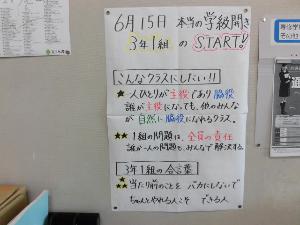 6月15日 本当の学級開き
3年1組の START!
こんなクラスにしたい!!
★一人ひとりが主役であり脇役
誰が主役になっても、他のみんな
が自然に脇役になれるクラス。
★★1組の問題は、全員の責任
誰か一人の問題も、みんなで解決する。
3年1組の合言葉
★★当たり前のことを バカにしないで
ちゃんとやれる人こそ できる人